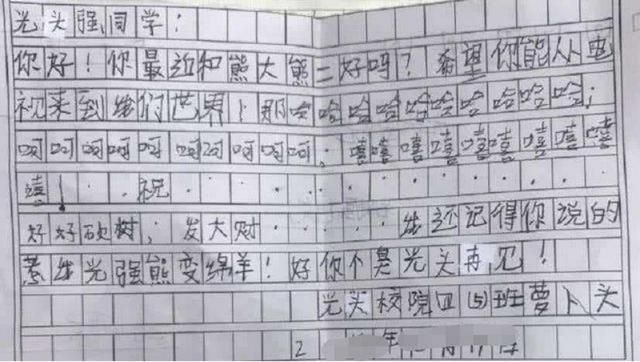 光头强同学：
你好！你最近和熊大熊二好吗？希望你能从电
视来到我们世界！那哈哈哈哈哈哈哈哈哈；
呵呵呵呵呵呵呵呵呵；嘻嘻嘻嘻嘻嘻嘻
嘻！··祝·········
好好砍树；发大财······我还记得你说的
惹我光强熊变绵羊！好你个臭光头再见！
光头校院四(5)班萝卜头
2 年